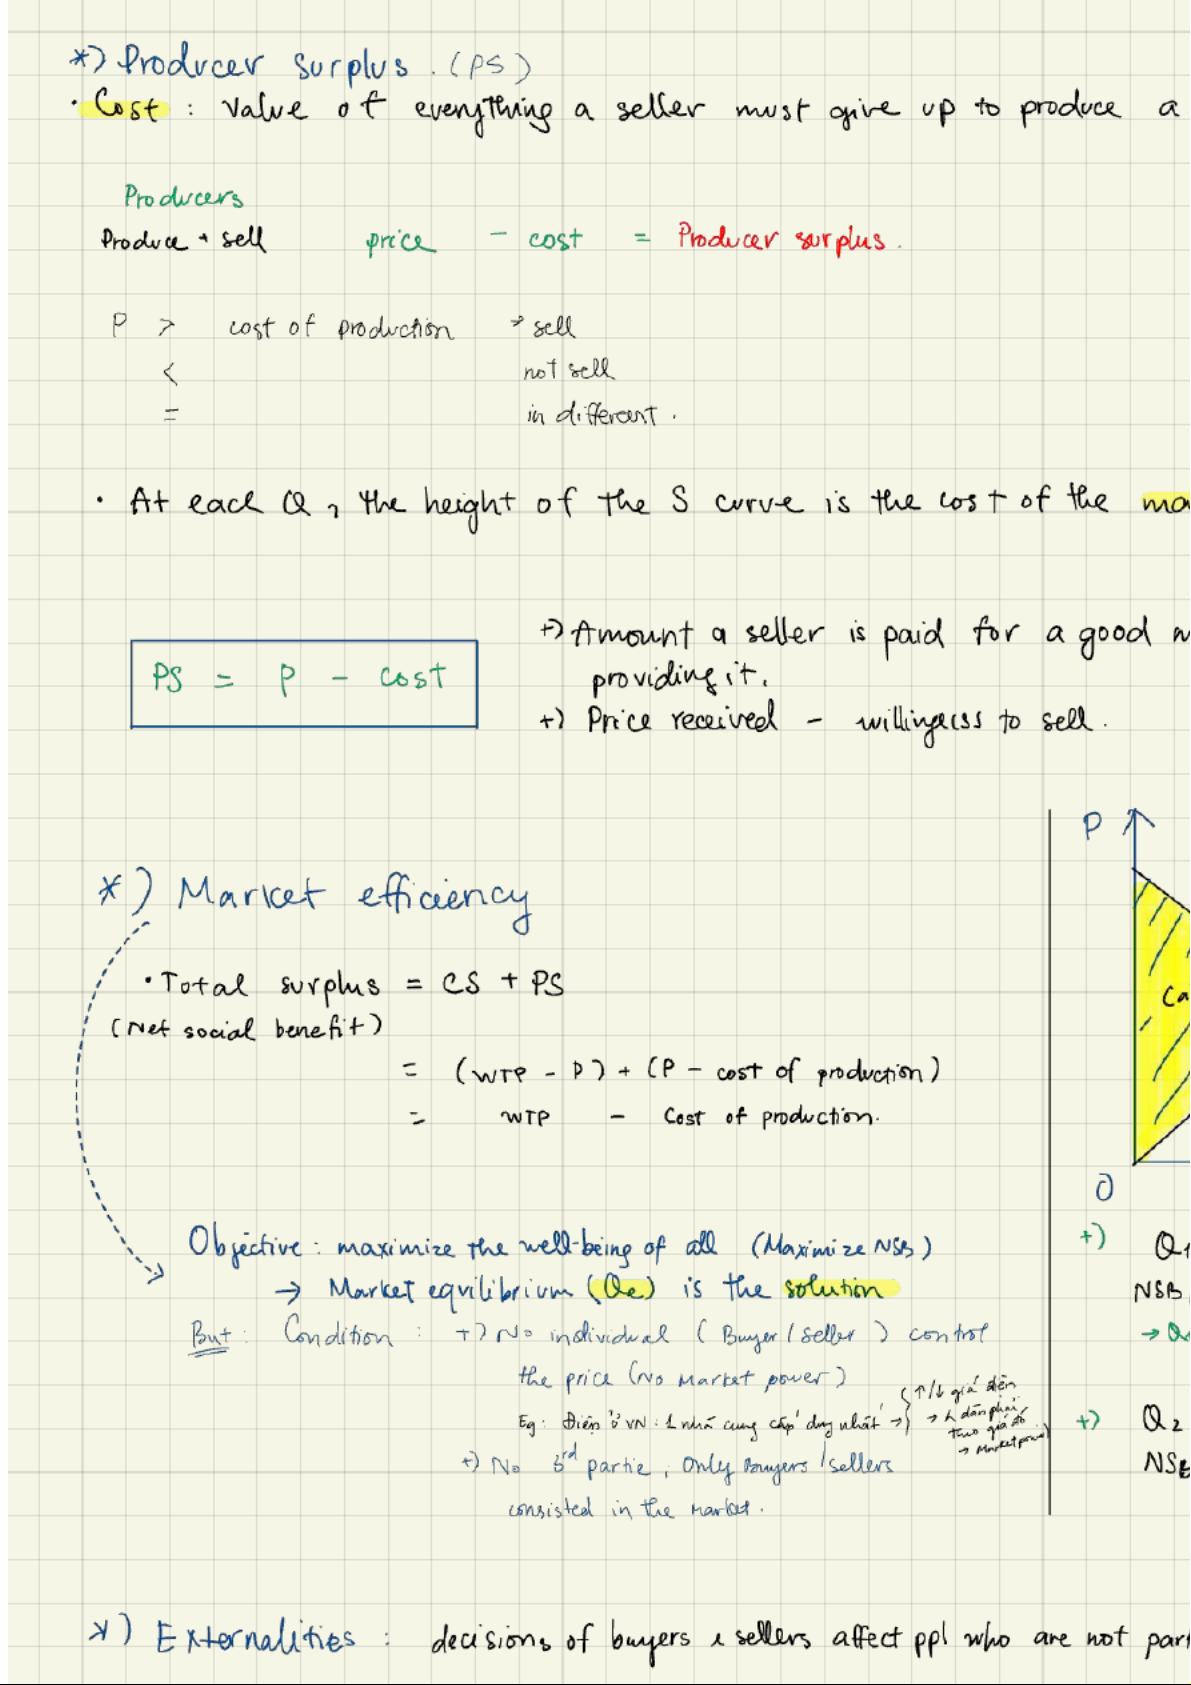 *) Producer surplus. (PS)
· Cost : Value of everything a seller must give up to produce a
Producers
Produce + sell price - cost = Producer surplus.
P > cost of production → sell
< not sell
= in different.
· At each Q, the height of the S curve is the cost of the ma
+) Amount a seller is paid for a good
PS = P - cost
providing it.
+) Price received - willingness to sell.
P
*) Market efficiency
· Total surplus = CS + PS
Ca
(Net social benefit)
= (WTP - P) + (P - cost of production)
= WTP - Cost of production.
O
Objective : maximize the well-being of all (Maximize NSB)
→ Market equilibrium (Qe) is the solution
But : Condition : +) No individual (Buyer / seller) control
the price (No Market power)
Eg : Điện ở VN : 1 nhà cung cấp duy nhất → { ↑/↓ giá điện
→ dân phải
theo giá đó
→ Market power
+) No 3rd partie, Only Buyers / sellers
consisted in the market.
+) Q1
NSB
→ Q
+) Q2
NSB
*) Externalities : decisions of buyers & sellers affect ppl who are not part